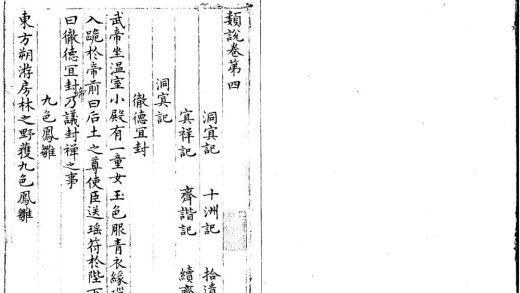 類說卷第四
洞冥記 十洲記 拾遺
冥祥記 齊諧記 續齊
洞冥記
徹德宜封
武帝坐溫室小殿有一童女玉色服青衣緣
入跪於帝前曰后土之尊使臣送瑤符於陛下
曰徹德宜封帝乃議封禪之事
九色鳳雛
東方朔游房林之野獲九色鳳雛